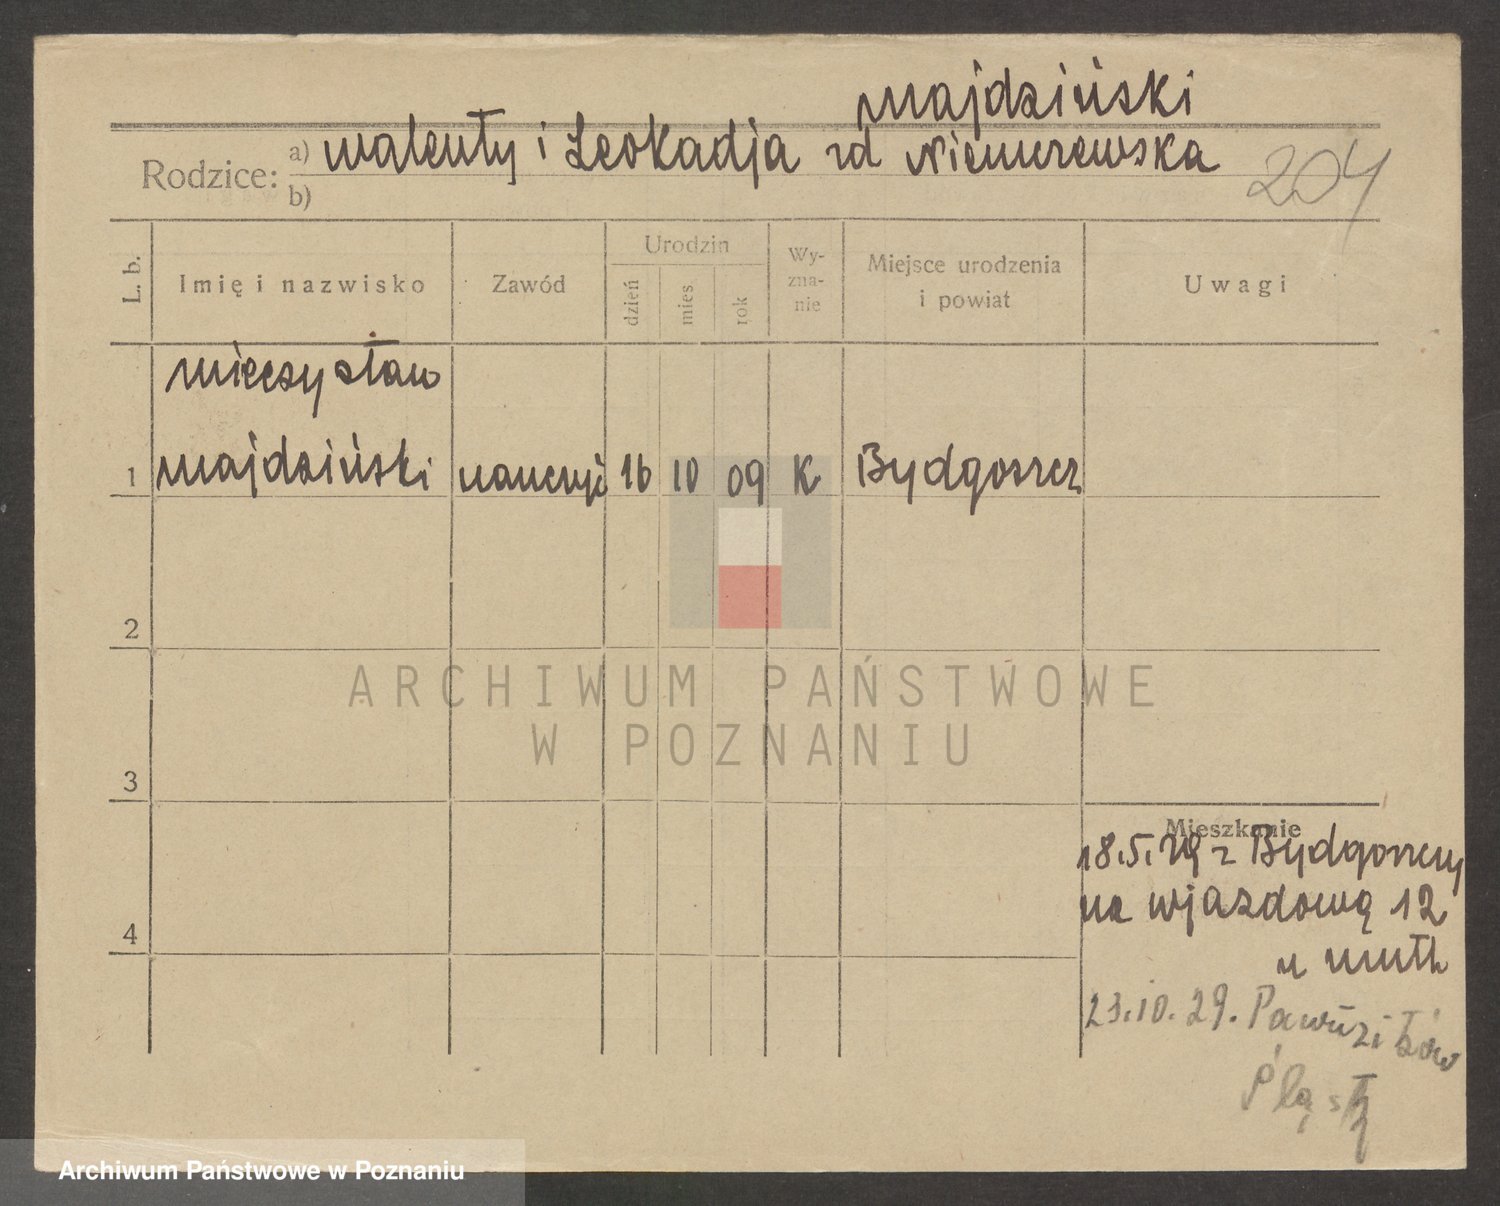 majdziński
Rodzice: a) walenty i Leokadja zd Niemczewska
b)
204
L. b. Imię i nazwisko Zawód Urodzin dzień mies rok Wy-zna-nie Miejsce urodzenia i powiat Uwagi
mieczysław
1 majdziński nauczyc 16 10 09 K Bydgoszcz
2
ARCHIWUM PAŃSTWOWE
W POZNANIU
3
Mieszkanie
18.5.29 z Bydgoszczy
na wjazdową 12
4
23.10.29.
Archiwum Państwowe w Poznaniu